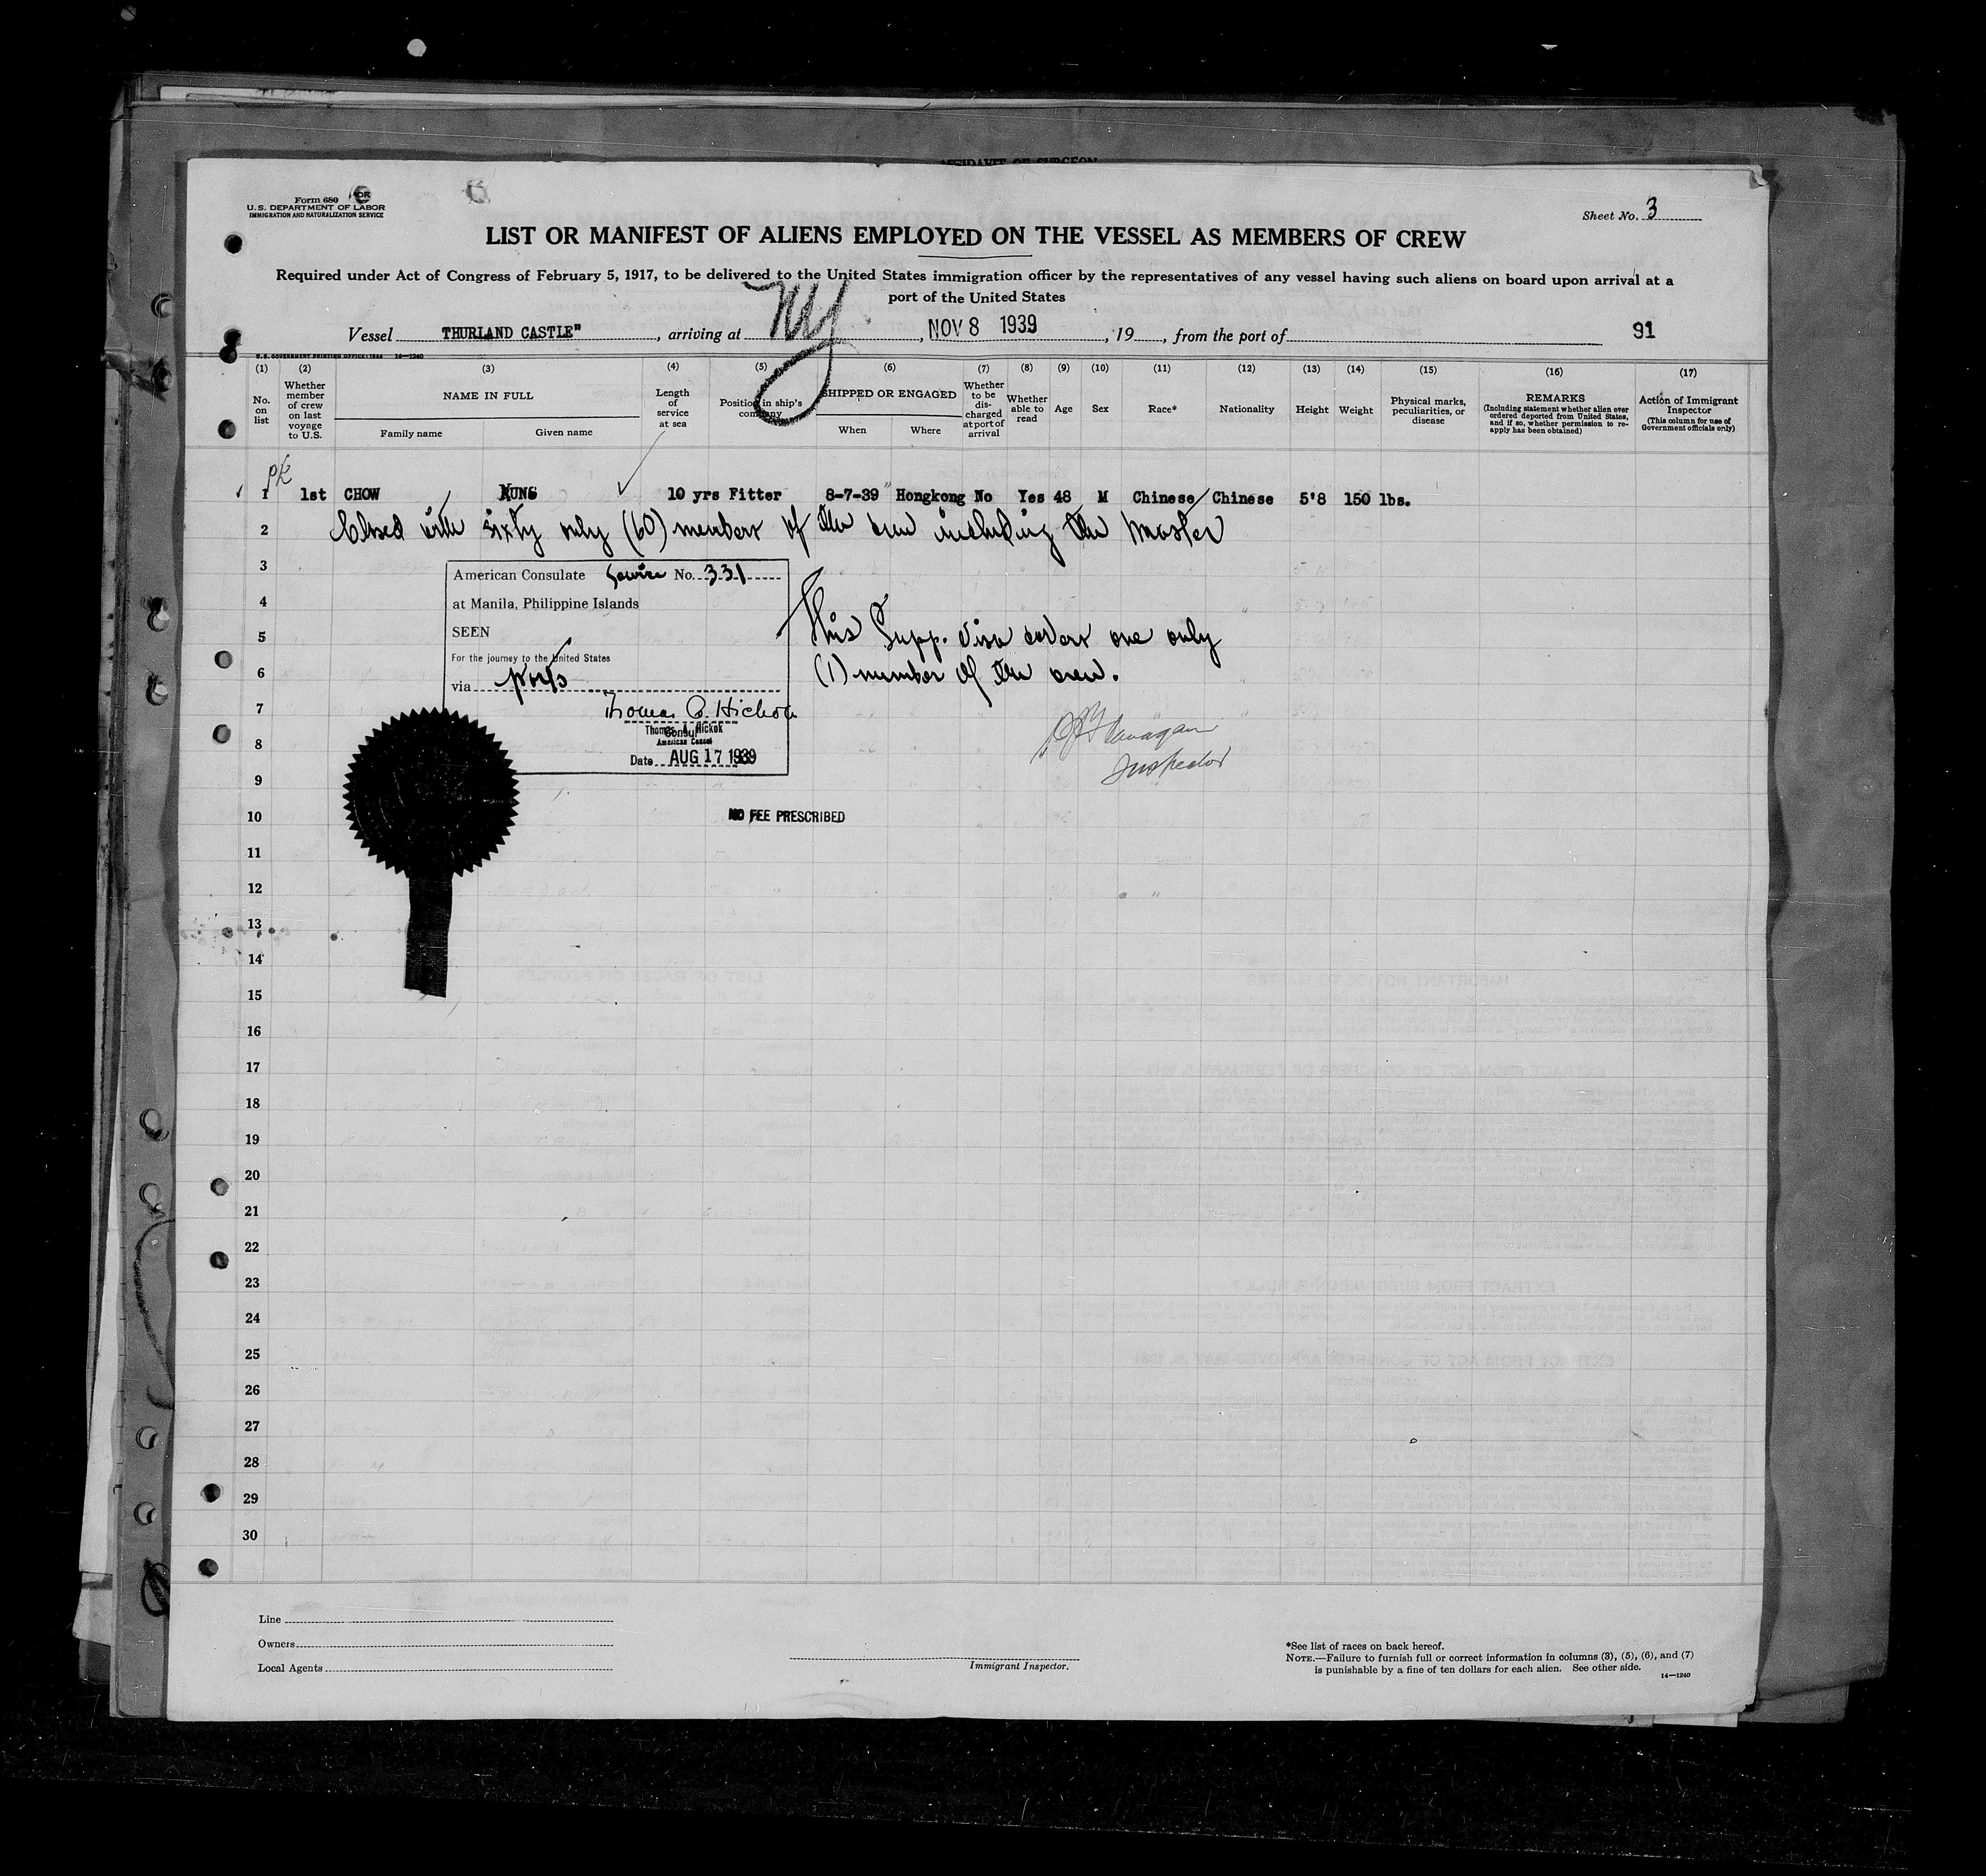 AFFIDAVIT OF SURGEON
Form 680
U. S. DEPARTMENT OF LABOR
IMMIGRATION AND NATURALIZATION SERVICE
Sheet No. 3
LIST OR MANIFEST OF ALIENS EMPLOYED ON THE VESSEL AS MEMBERS OF CREW
Required under Act of Congress of February 5, 1917, to be delivered to the United States immigration officer by the representatives of any vessel having such aliens on board upon arrival at a
port of the United States
Vessel THURLAND CASTLE", arriving at NY, NOV 8 1939, 19, from the port of 91
U.S. GOVERNMENT PRINTING OFFICE: 1934 14—1240
(1) (2) (3) (4) (5) (6) (7) (8) (9) (10) (11) (12) (13) (14) (15) (16) (17)
No. on list
Whether member of crew on last voyage to U.S.
NAME IN FULL
Family name Given name
Length of service at sea
Position in ship's company
SHIPPED OR ENGAGED
When Where
Whether to be discharged at port of arrival
Whether able to read
Age
Sex
Race*
Nationality
Height
Weight
Physical marks, peculiarities, or disease
REMARKS
(Including statement whether alien ever ordered deported from United States, and if so, whether permission to reapply has been obtained)
Action of Immigrant Inspector
(This column for use of Government officials only)
1 1st CHOW KUNG 10 yrs Fitter 8-7-39 Hongkong No Yes 48 M Chinese Chinese 5'8 150 lbs.
2 Closed with sixty only (60) members of the crew including the Master
3
American Consulate No. 331
4
at Manila, Philippine Islands
5
SEEN
This Supp. visa covers one only
For the journey to the United States
6
(1) member of the crew.
via ports
7
Thomas A. Hickok
Thomas A. Hickok
Consul
American Consul
8
Flanagan
Inspector
Date AUG 17 1939
9
10
NO FEE PRESCRIBED
11
12
13
14
15
16
17
18
19
20
21
22
23
24
25
26
27
28
29
30
Line
Owners
Local Agents
Immigrant Inspector.
*See list of races on back hereof.
NOTE.—Failure to furnish full or correct information in columns (3), (5), (6), and (7)
is punishable by a fine of ten dollars for each alien. See other side.
14—1240